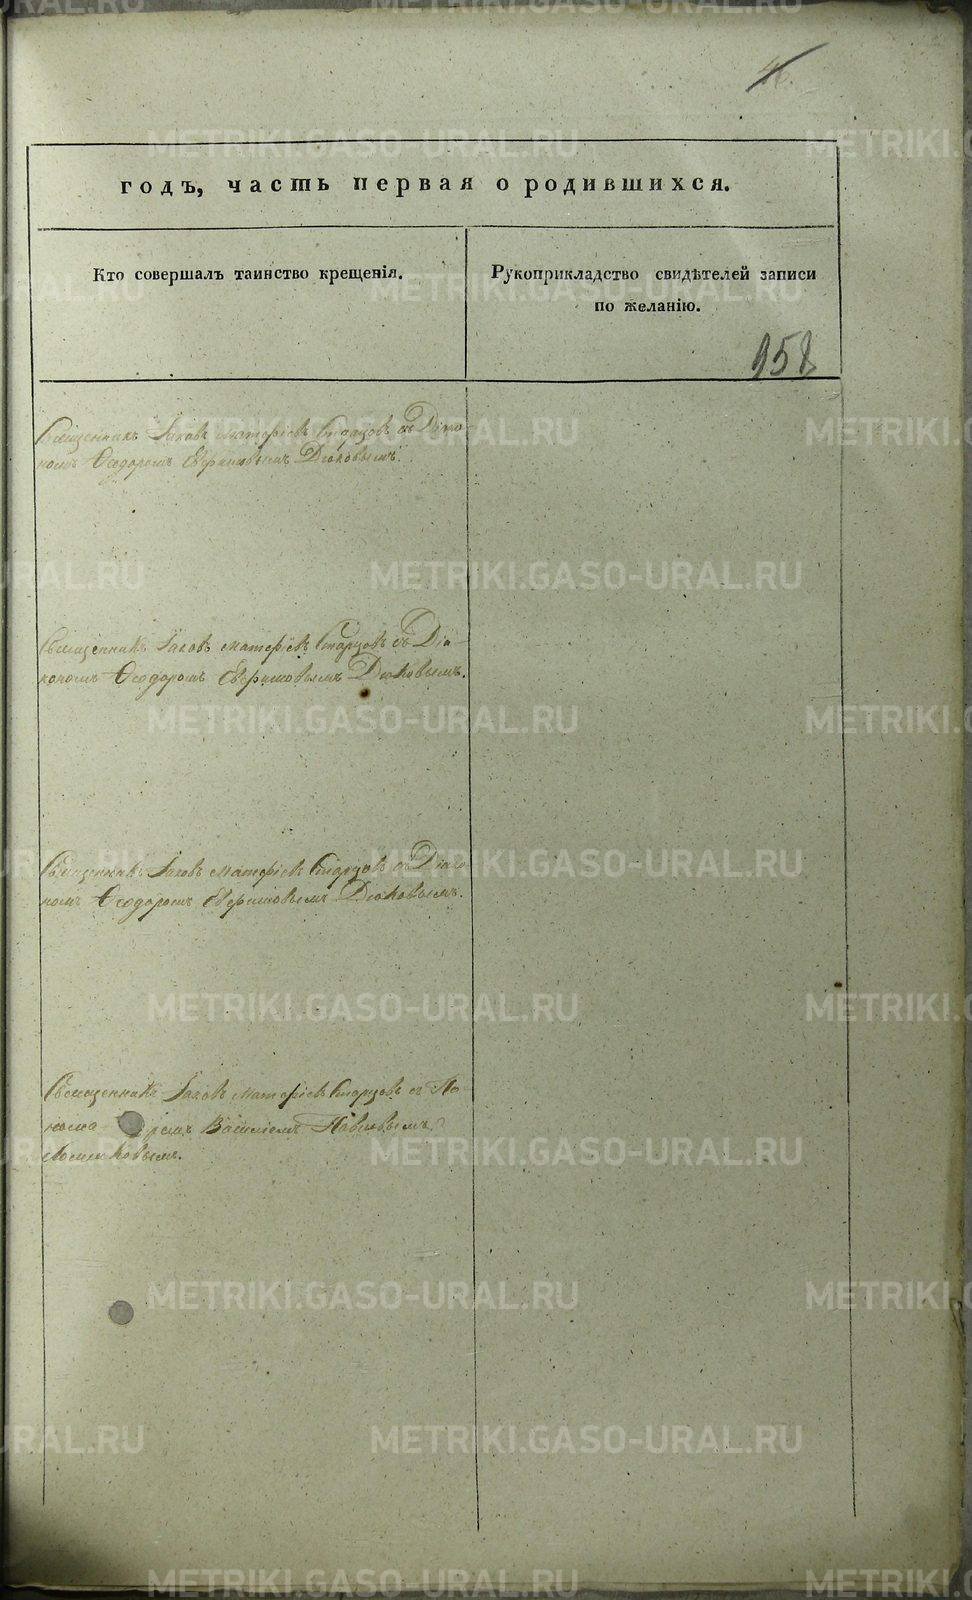 46.
годъ, часть первая о родившихся.
Кто совершалъ таинство крещенія.
Рукоприкладство свидѣтелей записи
по желанію.
958
Священникъ Іаковъ Матѳіевъ Старцовъ съ Діако
номъ Ѳеодоромъ Евфимовымъ Дюковымъ.
Священникъ Іаковъ Матѳіевъ Старцовъ съ Діа-
кономъ Ѳеодоромъ Евфимовымъ Дюковымъ.
Священникъ Іаковъ Матѳіевъ Старцовъ съ Діако
номъ Ѳеодоромъ Евфимовымъ Дюковымъ.
Священникъ Іаковъ Матѳіевъ Старцовъ съ По
нома ремъ Василіемъ
METRIKI.GASO-URAL.RU